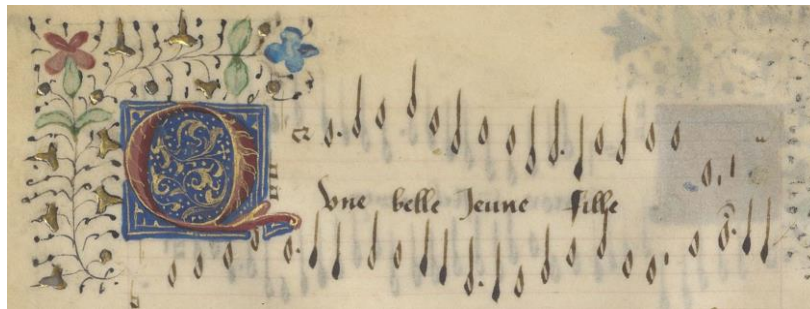 Q vne belle Jeune fille